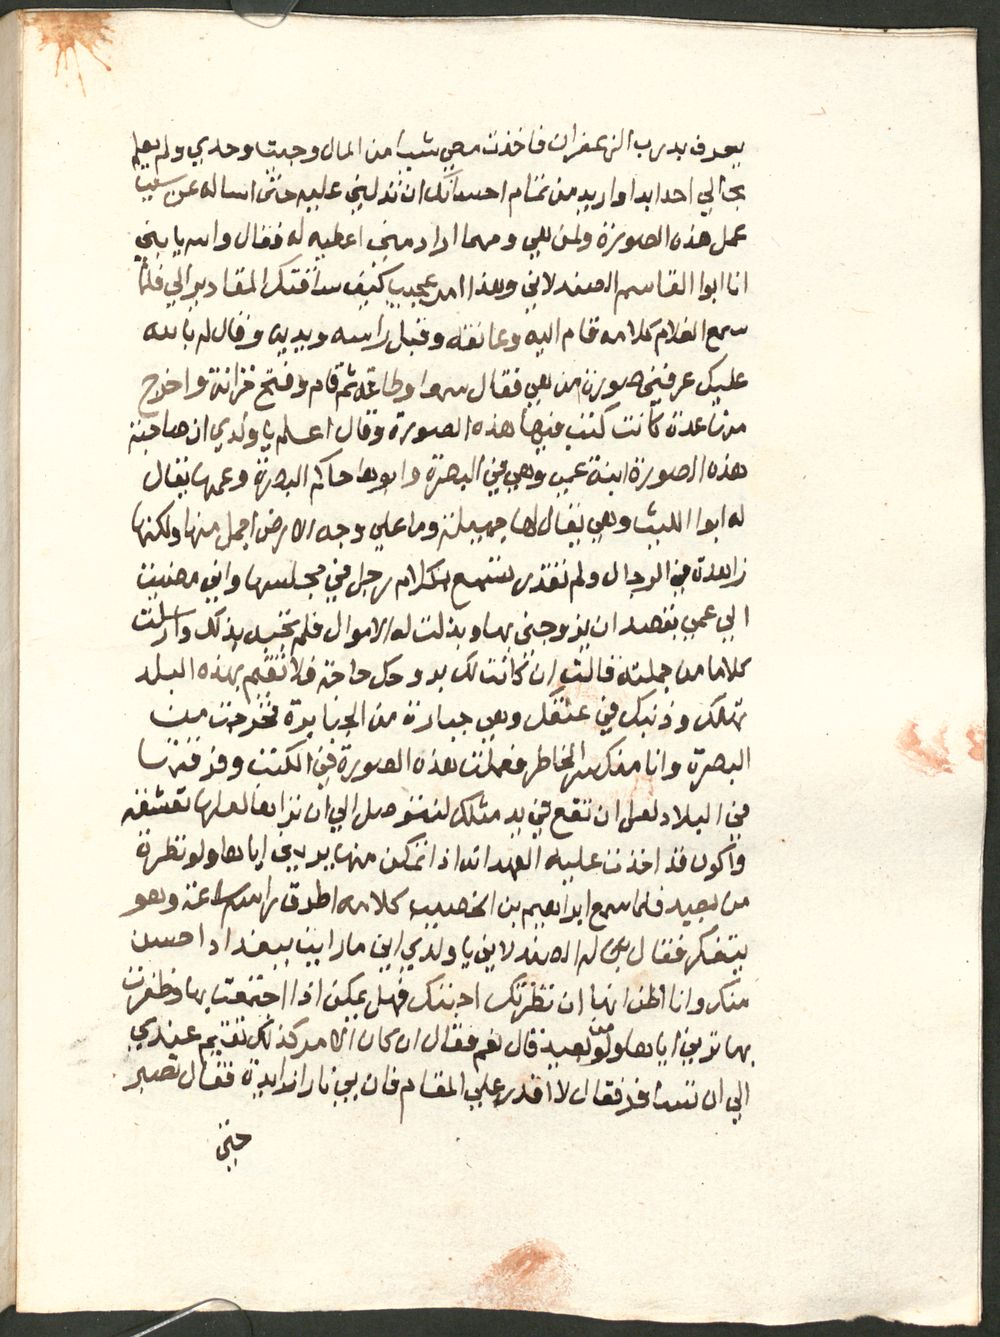 يعرف بدرب الزعفران فاخذت معي شيا من المال وجيت وحدي ولم يعلم
بحالي احدا بدا واريد من تمام احسانك ان تدليني عليه حتى اساله عن سبب
عمل هذه الصورة ولمن هي ومهما اراد مني اعطيه له فقال والله يا بني
انا ابوا القاسم الصندلاني وهذا امر عجيب كيف ساقتك المقادير الي فلما
سمع الغلام كلامه قام اليه وعانقه وقبل راسه ويديه وقال له بالله
عليك عرفني صورة من هي فقال سمعا وطاعة ثم قام وفتح خزانة واخرج
منها عدة كانت كتب فيها هذه الصورة وقال اعلم يا ولدي ان صاحبة
هذه الصورة ابنة عمي وهي في البصرة وابوها حاكم البصرة وعمها يقال
له ابوا الليث وهي يقال لها جميلة وما علي وجه الارض اجمل منها ولكنها
زاهدة في الرجال ولم تقدر تسمع بكلام رجل في مجلسها واني مضيت
الي عمي بقصد ان يزوجني بها وبذلت له الاموال فلم يجبه بذلك وارسلت
كلاما من جملته قالت ان كانت لك بد وكل حاجة فلا تقيم بهذه البلد
تهلك وذنبك في عنقك وهي جبارة من الجبابرة فخرجت من
البصرة وانا منكسر الخاطر فعملت هذه الصورة في الكتب وفرقتها
في البلاد لعل ان تقع في يد مثلك لتتوصل الي ان تراها لعلها تعشقه
واكون قد اخذت عليه العهد انه اذا تمكن منها يريني اياها ولو نظرة
من بعيد فلما سمع ابراهيم بن الخصيب كلامه اطرق راسه ساعة وهو
يتفكر فقال له الصندلاني يا ولدي اني ما رايت ببغداد احسن
منك وانا اظن انها ان نظرتك احبتك فهل يمكن اذا اجتمعت بها وظفرت
بها تريني اياها ولو من بعيد قال نعم فقال ان كان الامر كذلك تقيم عندي
الي ان تسافر فقال لا اقدر علي المقام فان بي نار زايدة فقال تصبر
حتى